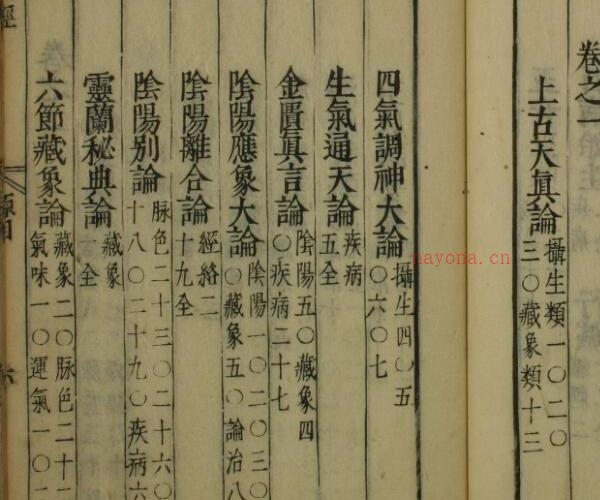 卷之一
上古天眞論
攝生類一〇二〇
三〇藏象類十三
四氣調神大論
攝生四〇五
〇六〇七
生氣通天論
疾病
五全
金匱眞言論
陰陽五〇藏象四
〇疾病二十七
陰陽應象大論
陰陽一〇二〇三〇
〇藏象五〇論治八
陰陽離合論
經絡二
十九全
陰陽別論
脉色二十三〇二十六〇
十八〇二十九〇疾病六
靈蘭秘典論
藏象
一全
六節藏象論
藏象二〇脉色二十
氣味一〇運氣一〇
經
nayona.cn